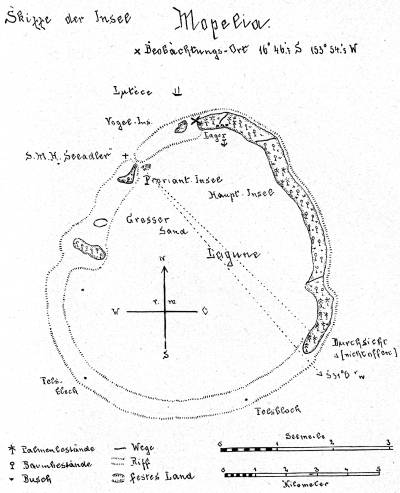 Skizze der Insel Mopelia.
x Beobachtungs-Ort 16° 46.'5 S 153° 54.'5 W
Lutèce
Vogel-Ins.
Lager
S.M.H. "Seeadler"
Proviant-Insel
Haupt-Insel
Grosser
Sand
Lagune
N
W O
r. m
S
Durchsicht
[nicht offen]
Fels-
block
Felsblock
Palmenbestände
Baumbestände
Busch
Wege
Riff
festes Land
Seemeile
0 1 2 3
0 1 2 3 4 5
Kilometer